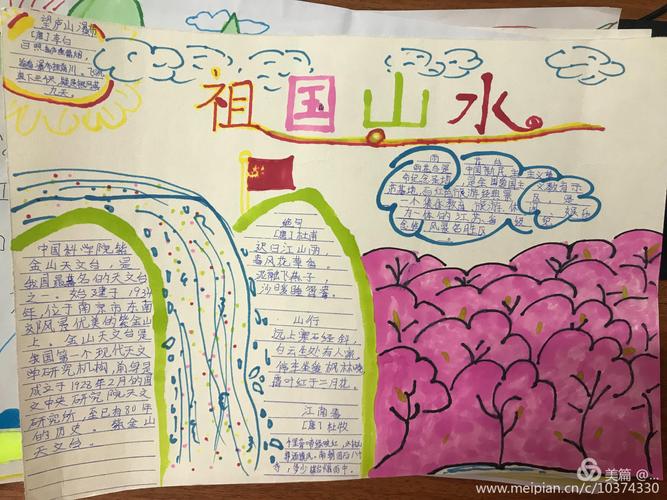 望庐山瀑布
[唐]李白
日照香炉生紫烟,
遥看瀑布挂前川。飞流
直下三千尺,疑是银河落
九天。
祖国山水。
雨花台
中国科学院紫
金山天文台,是
我国最著名的天文台
之一。始建于1934
年,位于南京市东南
郊风景优美的紫金山
上。金山天文台是
我国第一个现代天文
学研究机构,前身是
成立于1928年2月的国
立中央研究院天文
研究所,至已有80年
的历史。紫金山
天文台。
绝句
[唐]杜甫
迟日江山丽,
春风花草香。
泥融飞燕子,
沙日暖睡鸳鸯。
山行
远上寒石径斜,
白云生处有人家。
停车坐爱枫林晚,
霜叶红于二月花。
江南春
[唐]杜牧
千里莺啼绿映红,水村山
郭酒旗风。南朝四百八十
寺,多少楼台烟雨中。
美篇 @...
www.meipian.cn/c/10374330